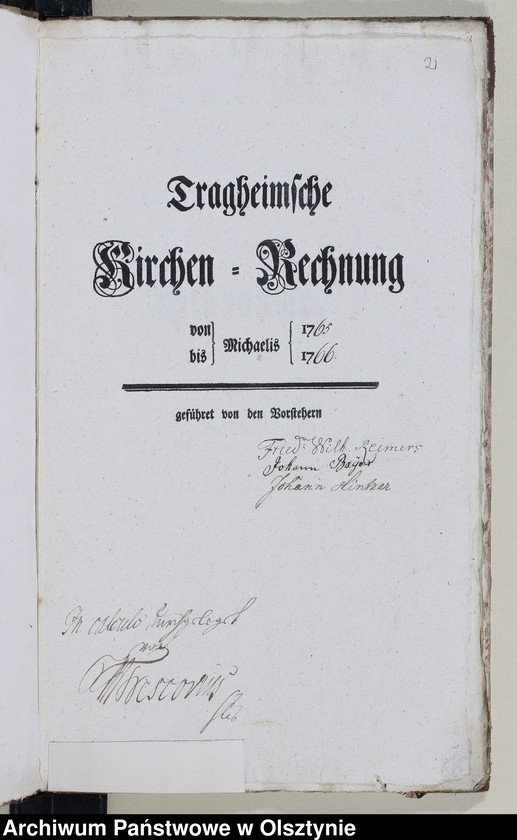 2
Tragheimſche
Kirchen = Rechnung
von } Michaelis { 1765
bis } { 1766.
geführet von den Vorſtehern
Fried: Wilh. Reimers
Johann Bayer
Johann Hintzer
In calculo durchgelegt
von
Archiwum Państwowe w Olsztynie